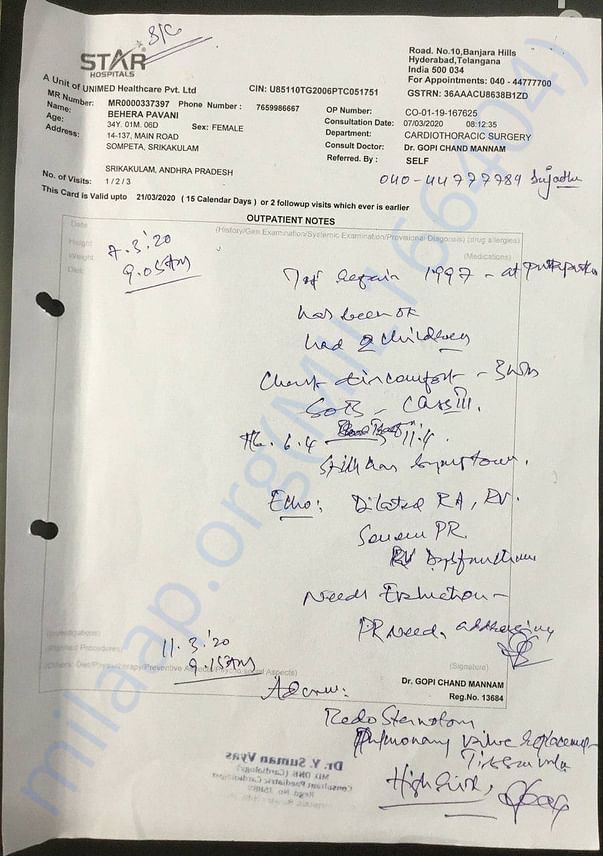 S/C
STAR
HOSPITALS
A Unit of UNIMED Healthcare Pvt. Ltd
CIN: U85110TG2006PTC051751
Road. No.10,Banjara Hills
Hyderabad,Telangana
India 500 034
For Appointments: 040 - 44777700
GSTRN: 36AAACU8638B1ZD
MR Number: MR0000337397 Phone Number : 7659986667
Name: BEHERA PAVANI
Age: 34Y. 01M. 06D Sex: FEMALE
Address: 14-137, MAIN ROAD
SOMPETA, SRIKAKULAM
SRIKAKULAM, ANDHRA PRADESH
OP Number: CO-01-19-167625
Consultation Date: 07/03/2020 08:12:35
Department: CARDIOTHORACIC SURGERY
Consult Doctor: Dr. GOPI CHAND MANNAM
Referred. By : SELF
040-44777784 Sujatha
No. of Visits: 1 / 2 / 3
This Card is Valid upto 21/03/2020 ( 15 Calendar Days ) or 2 followup visits which ever is earlier
OUTPATIENT NOTES
(History/Gen.Examination/Systemic Examination/Provisional Diagnosis) (drug allergies)
Date
Height
Weight
Diet
(Medications)
7.3.'20
9.05AM
Tof repair 1997 - at
has been OK
had 2 children
Chest discomfort -
SOB - Class III.
Hb. 6.4 11.4.
Still has symptoms.
Echo: Dilated RA, RV.
Severe PR
RV Dysfunction
Needs Evaluation -
PR needs addressing
(Investigations)
(Planned Procedures)
11.3.'20
9.15AM
(Signature)
Dr. GOPI CHAND MANNAM
Reg.No. 13684
Advise:
Redo Sternotomy
Pulmonary valve replacement
Tissue valve
High risk,
Dr. Y. Suman Vyas
MD DNB (Cardiology)
Consultant Paediatric Cardiologist
milaap.org(MILI166404)